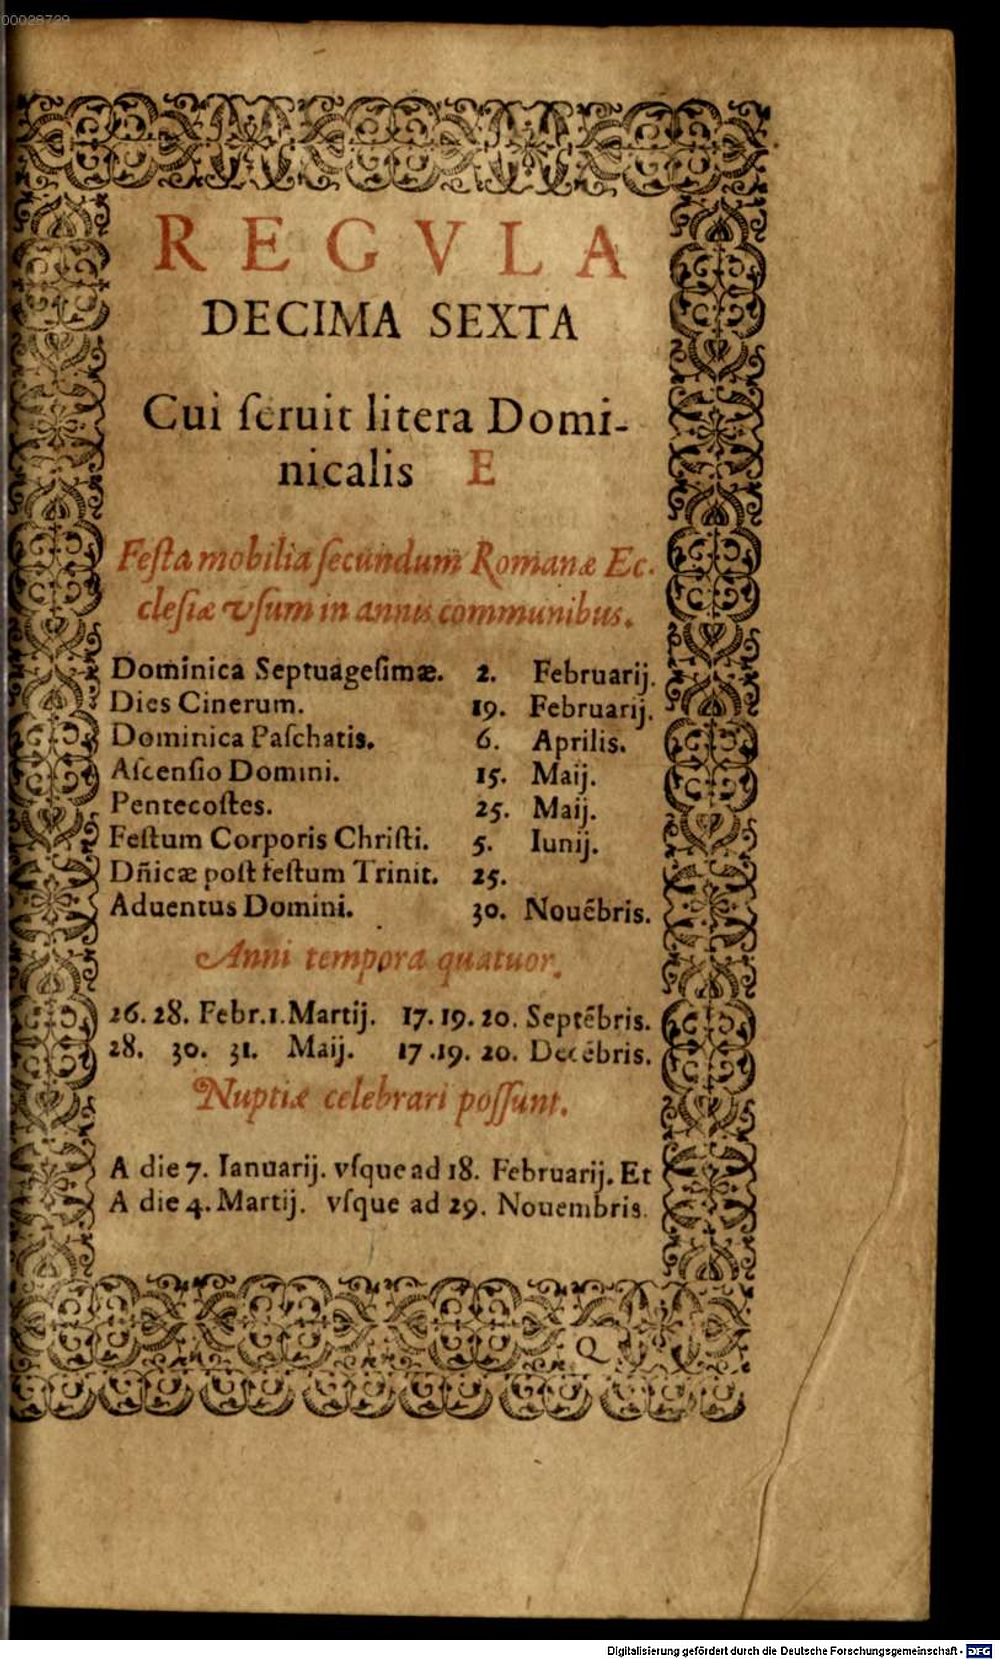 00028729
REGVLA
DECIMA SEXTA
Cui ſeruit litera Domi-
nicalis E
Feſta mobilia ſecundum Romanæ Ec-
cleſiæ vſum in annis communibus.
Dominica Septuageſimæ. 2. Februarij.
Dies Cinerum. 19. Februarij.
Dominica Paſchatis. 6. Aprilis.
Aſcenſio Domini. 15. Maij.
Pentecoſtes. 25. Maij.
Feſtum Corporis Chriſti. 5. Iunij.
Dñicæ poſt feſtum Trinit. 25.
Aduentus Domini. 30. Nouēbris.
Anni tempora quatuor.
26. 28. Febr. 1. Martij. 17. 19. 20. Septēbris.
28. 30. 31. Maij. 17. 19. 20. Decēbris.
Nuptiæ celebrari poſſunt.
A die 7. Ianuarij. vſque ad 18. Februarij. Et
A die 4. Martij. vſque ad 29. Nouembris.
Q
Digitalisierung gefördert durch die Deutsche Forschungsgemeinschaft - DFG